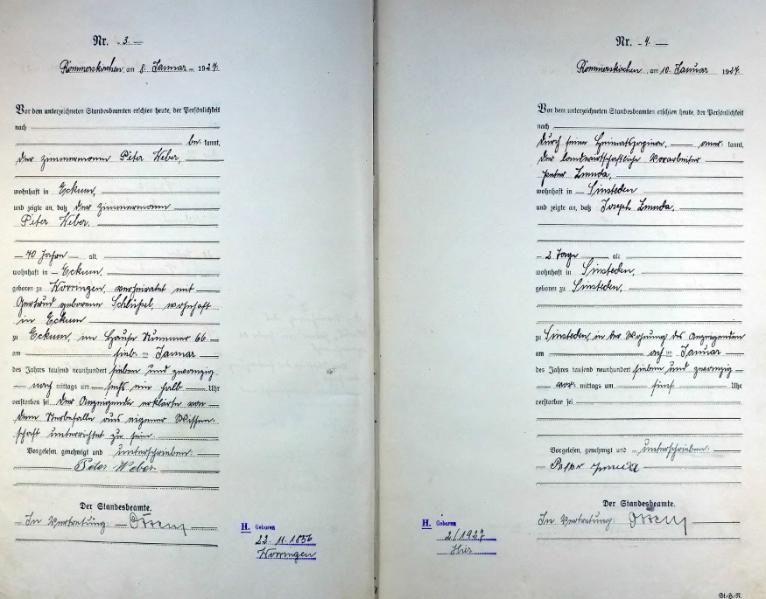 Nr. 3.
Rommerskirchen am 8. Januar 1927.
Vor dem unterzeichneten Standesbeamten erschien heute, der Persönlichkeit
nach
be kannt,
der Zimmermann Peter Weber,
wohnhaft in Eckum,
und zeigte an, daß der Zimmermann
Peter Weber,
40 Jahre alt,
wohnhaft in Eckum,
geboren zu Worringen, verheiratet mit
Gertrud geborene wohnhaft
in Eckum
zu Eckum, im Hause Nummer 66
am Januar
des Jahres tausend neunhundert sieben und zwanzig
nach mittags um ein halb Uhr
verstorben sei. Der Anzeigende erklärte von
dem Sterbefalle aus eigener Wissen
schaft unterrichtet zu sein.
Vorgelesen, genehmigt und unterschrieben.
Peter Weber
Der Standesbeamte.
In Vertretung:
H. Geboren
11. 1856
Worringen
Nr. 4.
Rommerskirchen, am 10. Januar 1927.
Vor dem unterzeichneten Standesbeamten erschien heute, der Persönlichkeit
nach
durch seinen kannt,
der landwirtschaftliche Vorarbeiter
Peter
wohnhaft in Sinsteden,
und zeigte an, daß Joseph
2 Tage alt
wohnhaft in Sinsteden,
geboren zu Sinsteden,
zu Sinsteden, in der Wohnung des Anzeigenden
am Januar
des Jahres tausend neunhundert sieben und zwanzig
vor mittags um fünf Uhr
verstorben sei.
Vorgelesen, genehmigt und unterschrieben.
Peter
Der Standesbeamte.
In Vertretung:
H. Geboren
2/1927
Hier